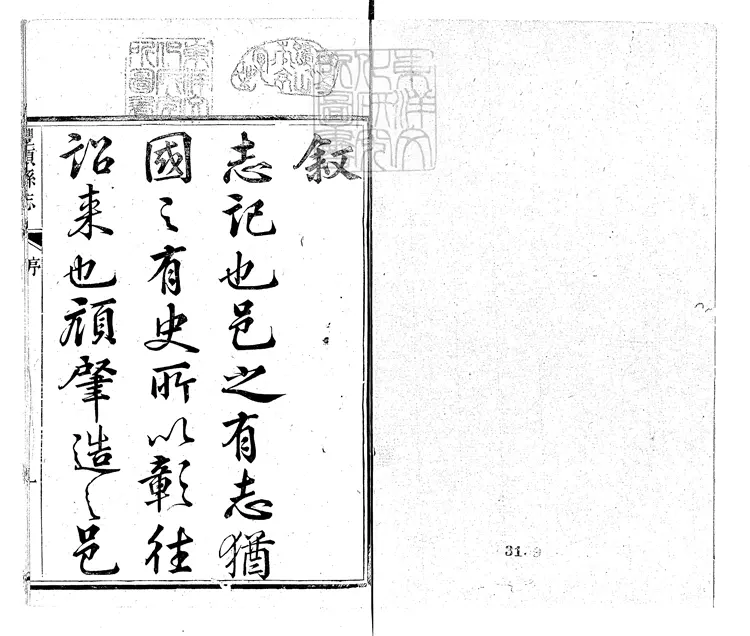 敘
志記也邑之有志猶
國之有史所以彰往
詔来也顧肇造之邑
序
31.9